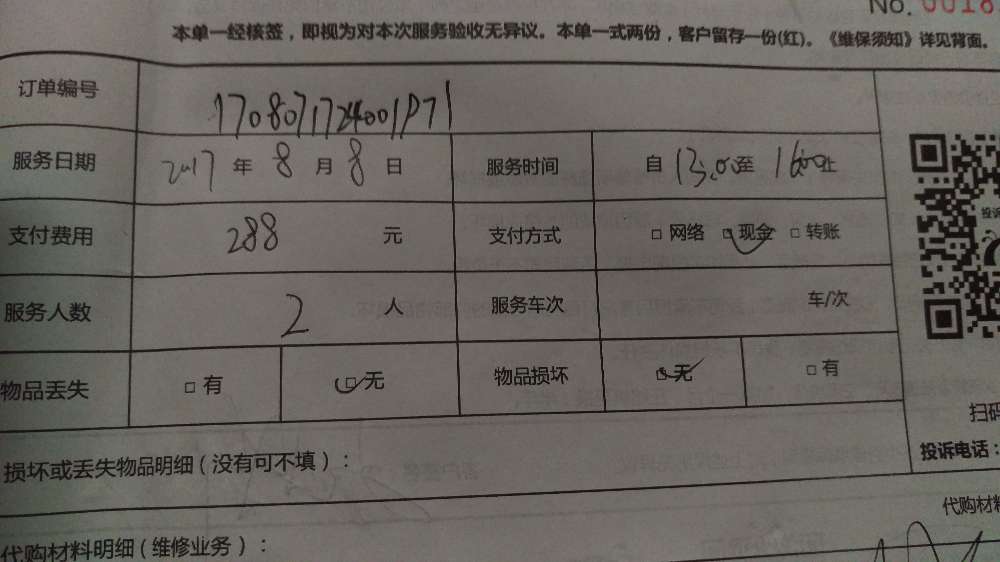 No. 0018
本单一经核签，即视为对本次服务验收无异议。本单一式两份，客户留存一份(红)。《维保须知》详见背面。
订单编号 1708071724001P71
服务日期 2017 年 8 月 8 日 服务时间 自 13:00 至 1600 止
支付费用 288 元 支付方式 □ 网络 □ 现金 □ 转账
服务人数 2 人 服务车次 车/次
物品丢失 □ 有 □ 无 物品损坏 □ 无 □ 有
损坏或丢失物品明细（没有可不填）：
投诉
扫码
投诉电话：
代购材料
代购材料明细（维修业务）：